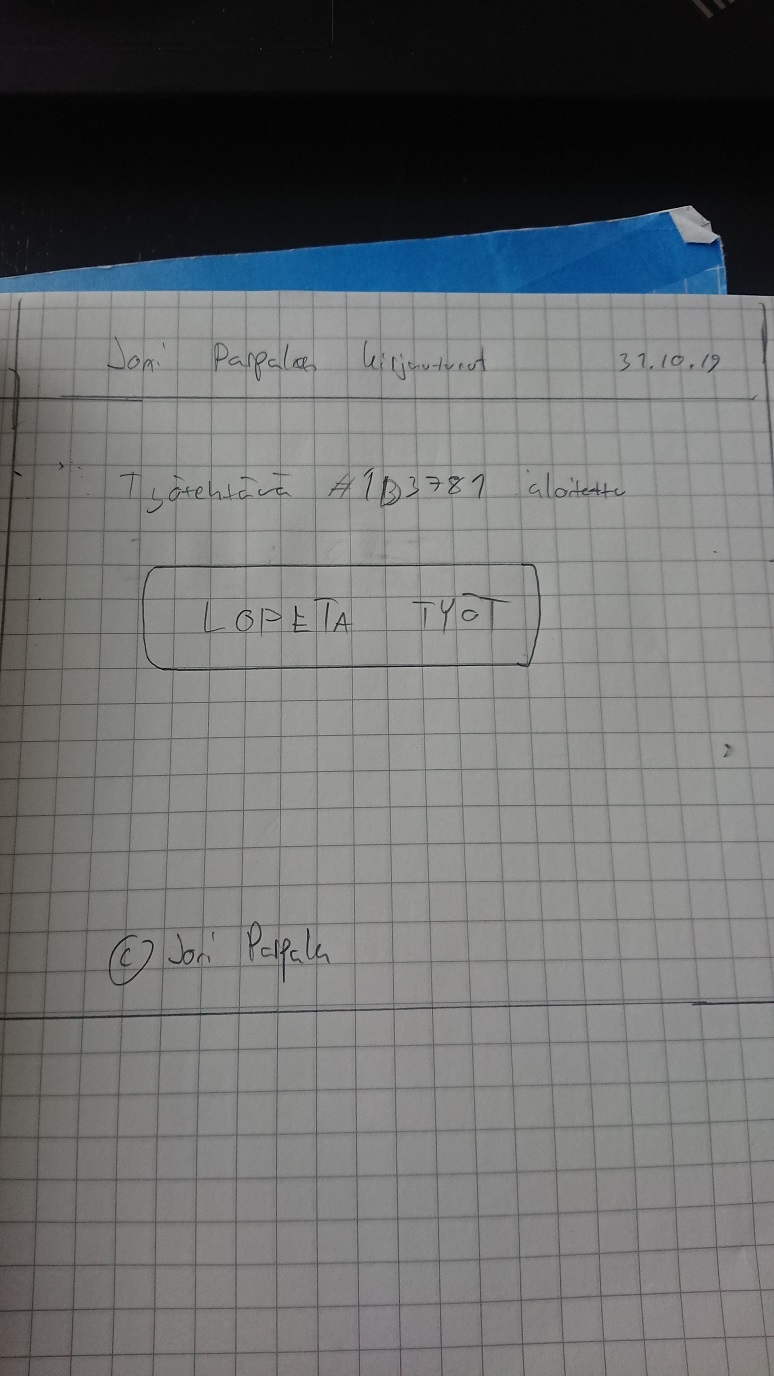 Joni Parpalan kirjautunut 31.10.19
Työtehtävä #1B3781 aloitettu
LOPETA TYÖT
© Joni Parpala